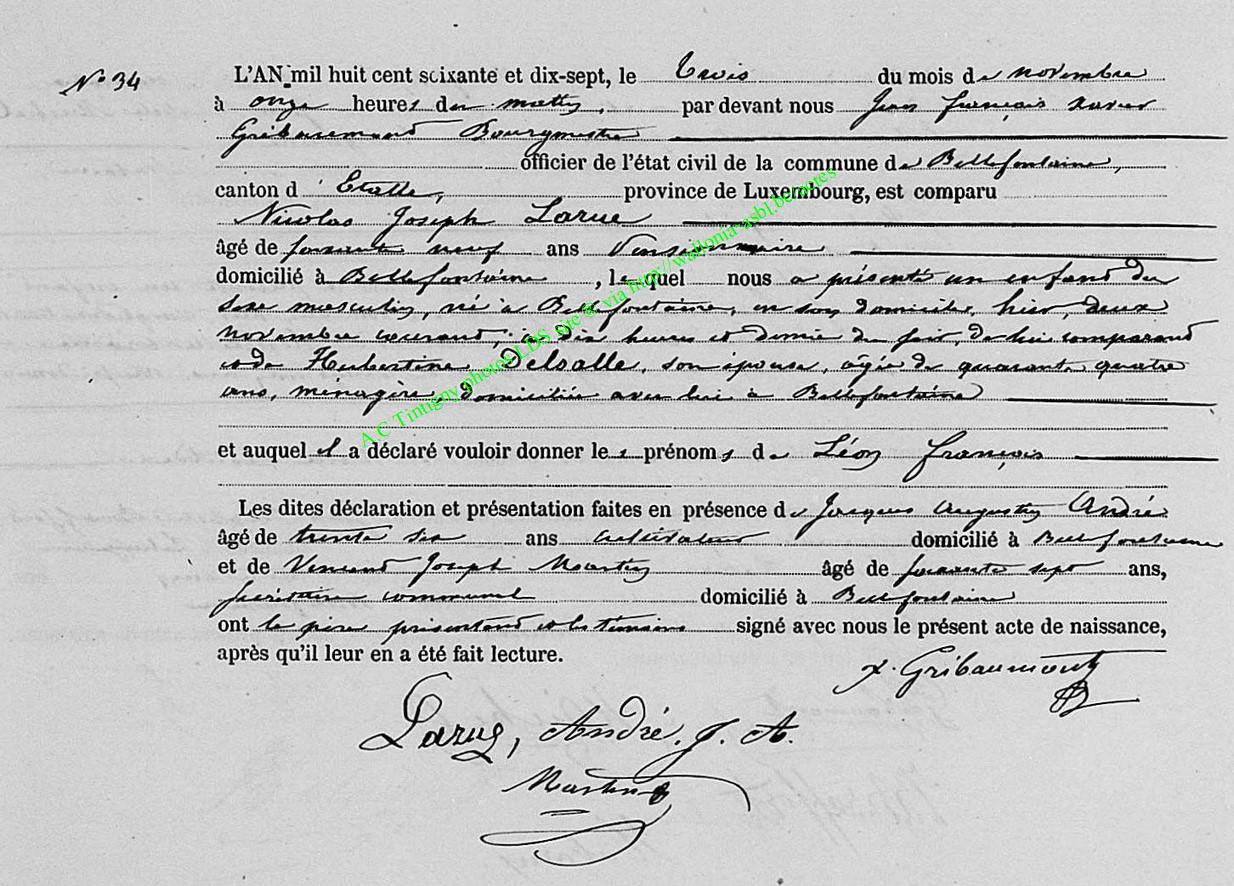 N° 34
L'AN mil huit cent soixante et dix-sept, le trois du mois de novembre
à onze heures du matin, par devant nous Jean François Xavier
Gribaumont Bourgmestre
officier de l'état civil de la commune de Bellefontaine,
canton d'Etalle, province de Luxembourg, est comparu
Nicolas Joseph Larue
âgé de soixante neuf ans Pensionnaire
domicilié à Bellefontaine, lequel nous a présenté un enfant du
sexe masculin, né à Bellefontaine, en son domicile, hier, deux
novembre courant, à dix heures et demie du soir, de lui comparant
et de Hubertine Delsalle, son épouse, âgée de quarante quatre
ans, ménagère, domiciliée avec lui à Bellefontaine
et auquel il a déclaré vouloir donner les prénoms de Léon François
Les dites déclaration et présentation faites en présence de Jacques Augustin André
âgé de trente six ans cultivateur domicilié à Bellefontaine
et de Vincent Joseph Martin âgé de soixante sept ans,
secrétaire communal domicilié à Bellefontaine
ont le père présentant et les témoins signé avec nous le présent acte de naissance,
après qu'il leur en a été fait lecture.
X. Gribaumont
Larue, André. J. A.
Martin
A.C Tintigny photos LDS site @ via http://wallonia-asbl.be/actes